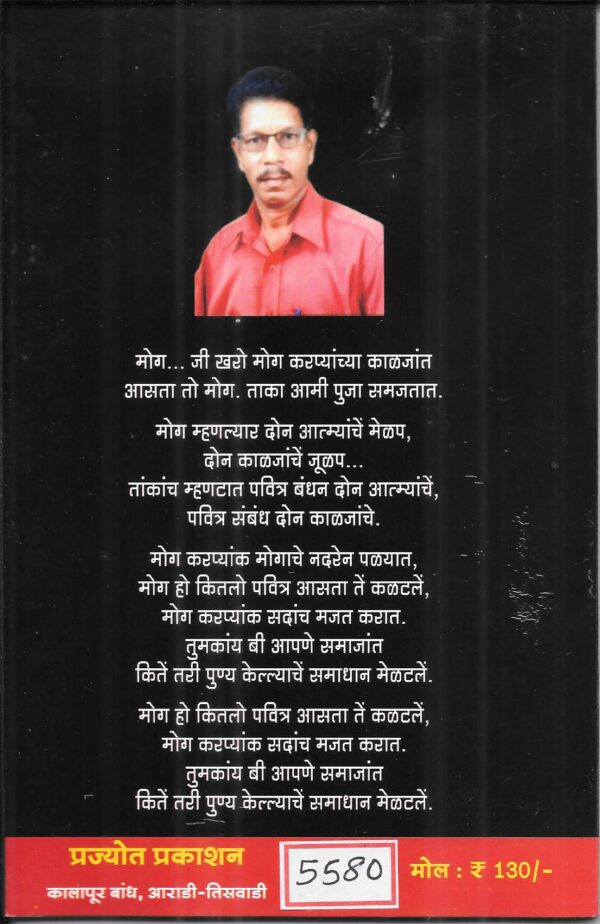 मोग... जी खरो मोग करप्यांच्या काळजांत
आसता तो मोग. ताका आमी पुजा समजतात.
मोग म्हणल्यार दोन आत्म्यांचें मेळप,
दोन काळजांचें जूळप...
तांकांच म्हणटात पवित्र बंधन दोन आत्म्यांचें,
पवित्र संबंध दोन काळजांचे.
मोग करप्यांक मोगाचे नदरेन पळयात,
मोग हो कितलो पवित्र आसता तें कळटलें,
मोग करप्यांक सदांच मजत करात.
तुमकांय बी आपणे समाजांत
कितें तरी पुण्य केल्ल्याचें समाधान मेळटलें.
मोग हो कितलो पवित्र आसता तें कळटलें,
मोग करप्यांक सदांच मजत करात.
तुमकांय बी आपणे समाजांत
कितें तरी पुण्य केल्ल्याचें समाधान मेळटलें.
प्रज्योत प्रकाशन
कालापूर बांध, आराडी-तिसवाडी
5580
मोल : ₹ 130/-